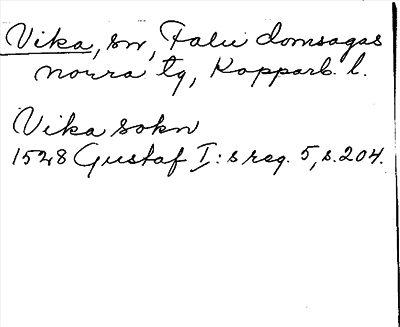 Vika, sn, Falu domsagas
norra tg, Kopparb. l.
Vika sokn
1528 Gustaf I:s reg. 5, s. 204.